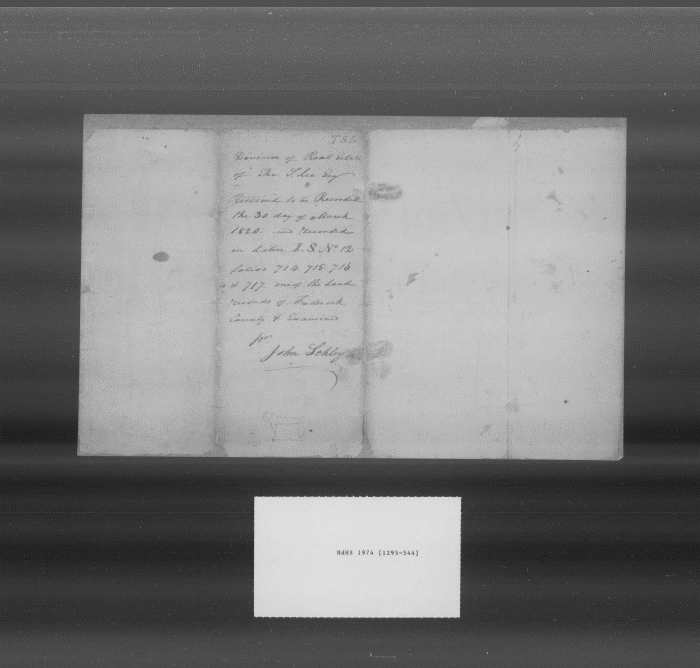 T S L
Division of Real Estate
of Tho S Lee Esqr
Received to be Recorded
the 30 day of March
1820. and recorded
in Liber I. S. No 12
folios 714. 715. 716
& 717. one of the Land
records of Frederick
County & Examined
pr.
John Schley
MdHR 1974 [1295-344]